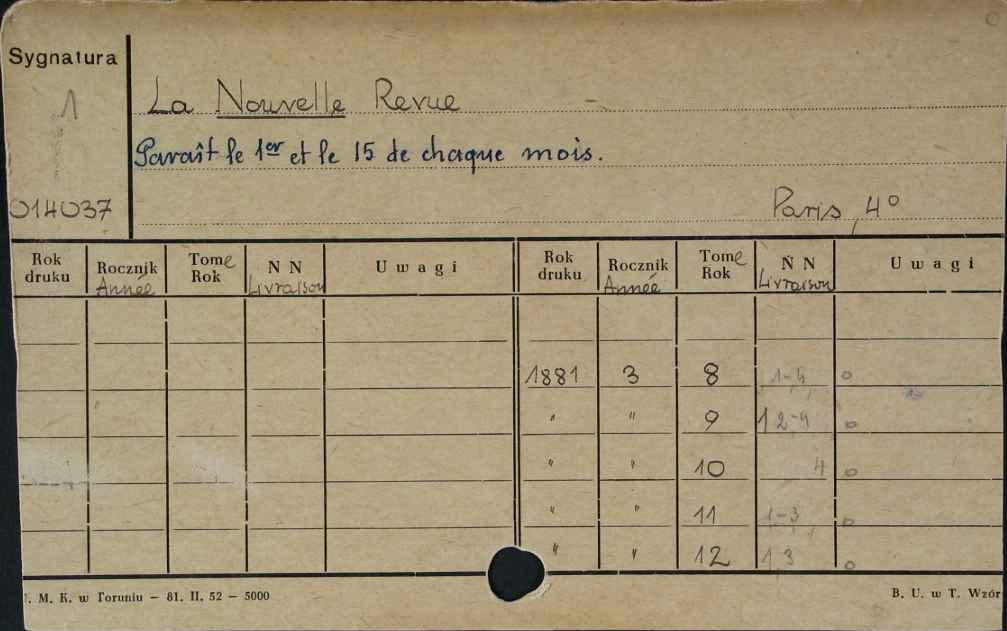 Sygnatura
1
La Nouvelle Revue
Paraît le 1er et le 15 de chaque mois.
014037
Paris, 4º
Rok druku Rocznik Année Tome Rok N N Livraison Uwagi Rok druku Rocznik Année Tome Rok N N Livraison Uwagi
1881 3 8 1-4 o
" " 9 1 2-4 o
" " 10 4 o
" " 11 1-3 o
" " 12 1, 3 o
. M. K. w Toruniu — 81. II. 52 — 5000
B. U. w T. Wzór